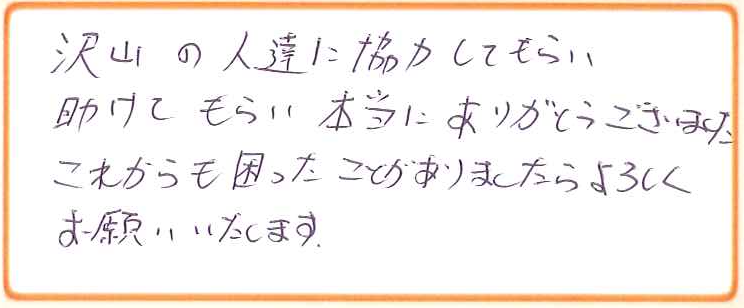 沢山の人達に協力してもらい
助けてもらい本当にありがとうございました
これからも困ったことがありましたらよろしく
お願いいたします.